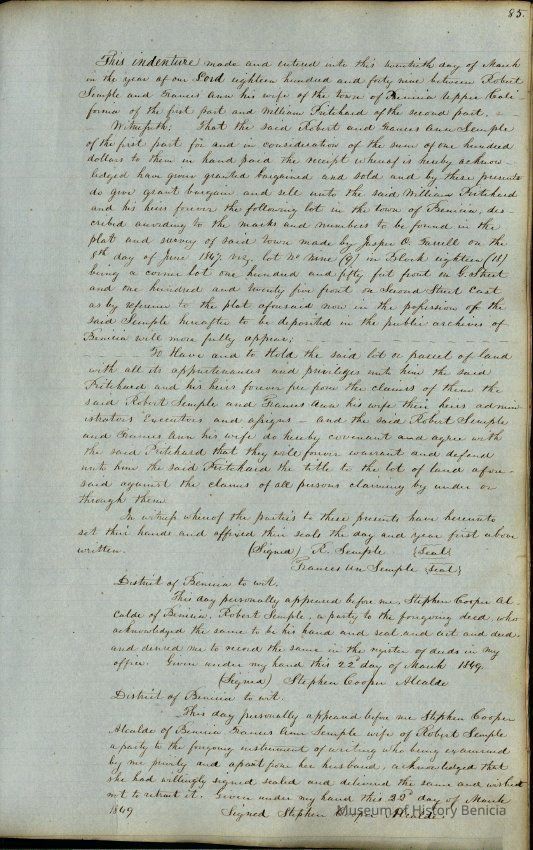 85.
This indenture made and entered into this twentieth day of March
in the year of our Lord eighteen hundred and forty nine between Robert
Semple and Frances Ann his wife of the town of Benicia Upper Cali-
fornia of the first part and William Pritchard of the second part.
Witnesseth; That the said Robert and Frances Ann Semple
of the first part for and in consideration of the sum of one hundred
dollars to them in hand paid the receipt whereof is hereby acknow-
ledged have given granted bargained and sold and by these presents
do give grant bargain and sell unto the said William Pritchard
and his heirs forever the following lot in the town of Benicia, des-
cribed according to the marks and numbers to be found in the
plat and survey of said town made by Jasper O. Farrell on the
8th day of June 1847. viz, lot No Nine (9) in Block eighteen (18)
being a corner lot one hundred and fifty feet front on G. Street
and one hundred and twenty five front on Second Street East
as by reference to the plat aforesaid now in the possession of the
said Semple hereafter to be deposited in the public archives of
Benicia will more fully appear;
To Have and to Hold the said lot or parcel of land
with all its appurtenances and privileges unto him the said
Pritchard and his heirs forever free from the claims of them the
said Robert Semple and Frances Ann his wife their heirs admin
istrators Executors and assigns – and the said Robert Semple
and Frances Ann his wife do hereby covenant and agree with
the said Pritchard that they will forever warrant and defend
unto him the said Pritchard the title to the lot of land afore-
said against the claims of all persons claiming by under or
through them
In witness whereof the parties to these presents have hereunto
set their hands and affixed their seals the day and year first above
written. (Signed) R. Semple {Seal}
Frances An Semple {Seal}
District of Benicia to wit.
This day personally appeared before me, Stephen Cooper Al-
calde of Benicia, Robert Semple, a party to the foregoing deed, who
acknowledged the same to be his hand and seal and act and deed
and desired me to record the same in the register of deeds in my
office. Given under my hand this 22d day of March 1849.
(Signed) Stephen Cooper Alcalde
District of Benicia to wit.
This day personally appeared before me Stephen Cooper
Alcalde of Benicia Frances Ann Semple wife of Robert Semple
a party to the foregoing instrument of writing who being examined
by me privily and apart from her husband, acknowledged that
she had willingly signed sealed and delivered the same and wished
not to retract it. Given under my hand this 22d day of March
1849 Signed Stephen Cooper
Museum of History Benicia